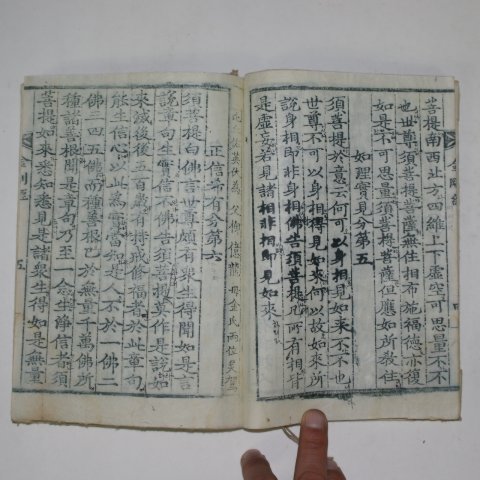 菩提南西北方四維上下虛空可思量不不
也世尊須菩提菩薩無住相布施福德亦復
如是不可思量須菩提菩薩但應如所敎住
如理實見分第五
須菩提於意云何可以身相見如來不不也
世尊不可以身相得見如來何以故如來所
說身相即非身相佛告須菩提凡所有相皆
是虛妄若見諸相非相即見如來
母金氏兩位
正信希有分第六
須菩提白佛言世尊頗有衆生得聞如是言
說章句生實信不佛告須菩提莫作是說如
來滅後後五百歲有持戒修福者於此章句
能生信心以此爲實當知是人不於一佛二
佛三四五佛而種善根已於無量千萬佛所
種諸善根聞是章句乃至一念生淨信者須
菩提如來悉知悉見是諸衆生得如是無量
金剛經 五